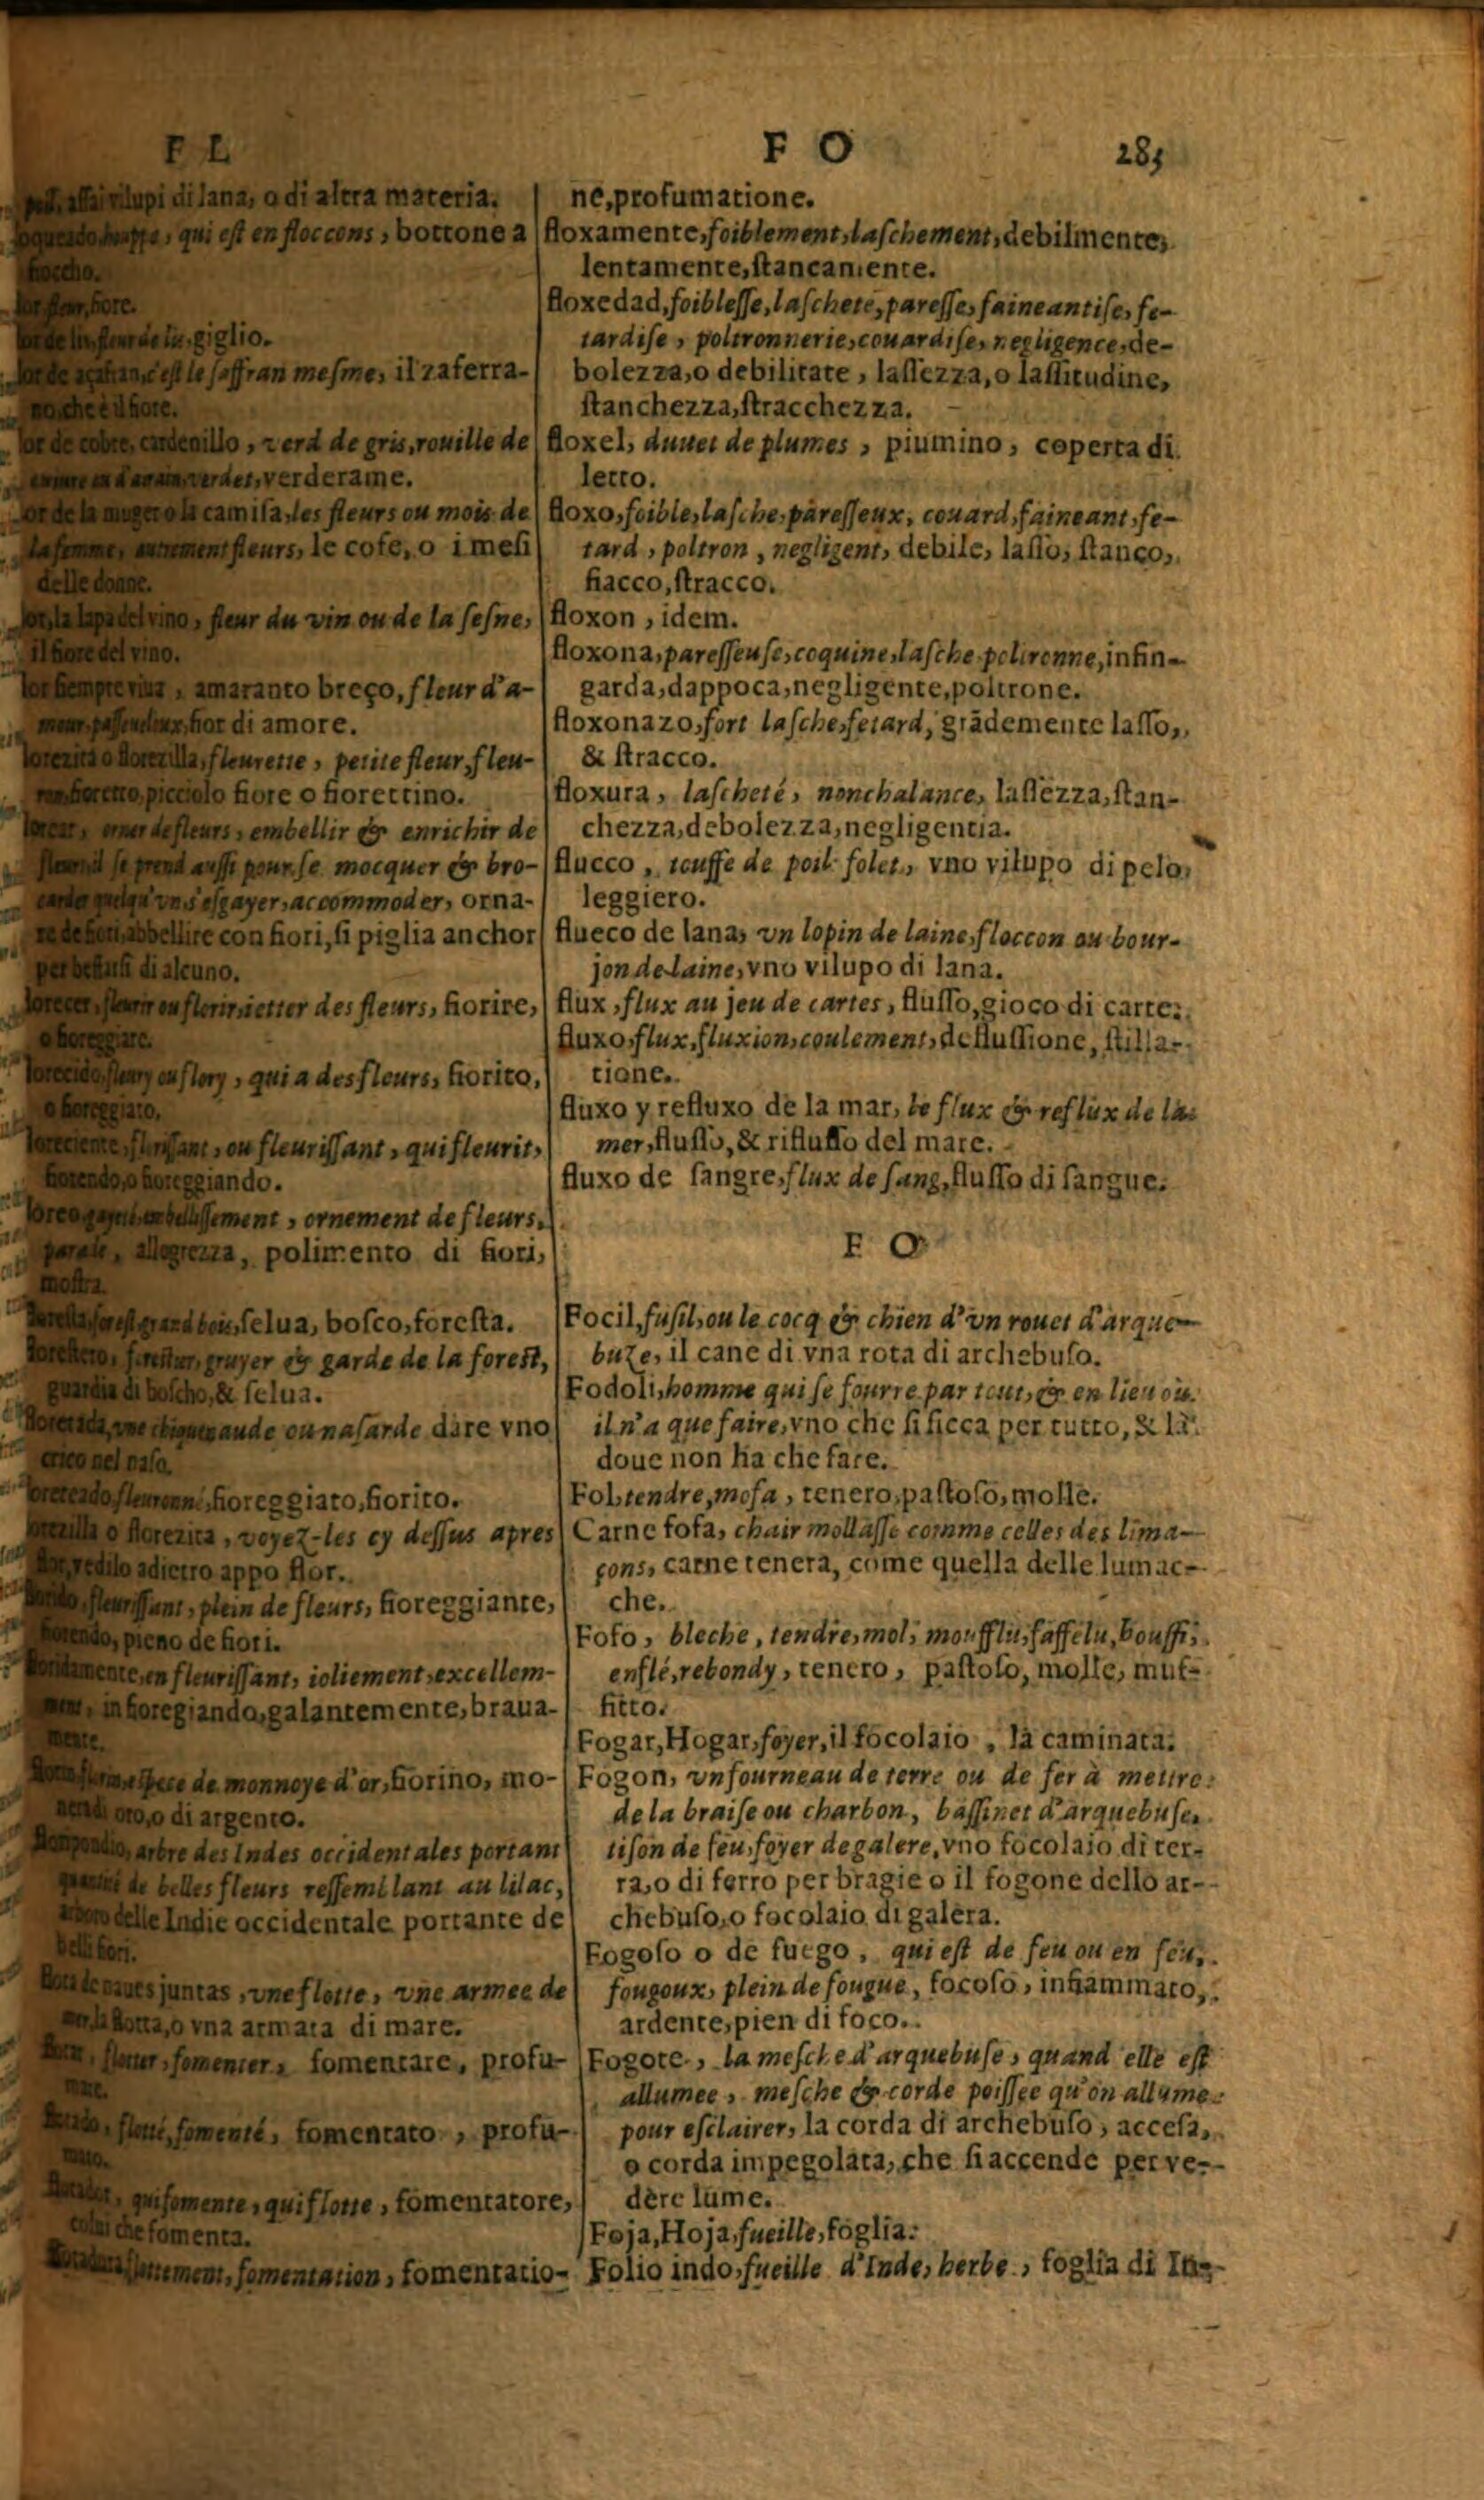 F L
F O
285
vilupi di lana, o di altra materia.
qui est en floccons, bottone a
fioccho.
fiore.
giglio.
c'est le saffran mesme, il zaferra-
no, che è il fiore.
lor de cobre, cardenillo, verd de gris, rouille de
verdet, verderame.
or de la muger o la camisa, les fleurs ou mois de
la femme, autrement fleurs, le cose, o i mesi
delle donne.
lor, la lapa del vino, fleur du vin ou de la sesne,
il fiore del vino.
lor siempre viua, amaranto breço, fleur d'a-
mour, passeueloux, fior di amore.
lorezita o florezilla, fleurette, petite fleur, fleu-
fioretto, picciolo fiore o fiorettino.
lorear, orner de fleurs, embellir & enrichir de
fleurs, il se prend aussi pour se mocquer & bro-
carder quelqu'vn, s'esgayer, accommoder, orna-
re de fiori, abbellire con fiori, si piglia anchor
per beffarsi di alcuno.
lorecer, fleurir ou florir, ietter des fleurs, fiorire,
o fioreggiare.
lorecido, fleury ou flory, qui a des fleurs, fiorito,
o fioreggiato.
loreciente, florissant, ou fleurissant, qui fleurit,
fiorendo, o fioreggiando.
loreo, embellissement, ornement de fleurs,
parade, allegrezza, polimento di fiori,
mostra.
loresta, forest, grand bois, selua, bosco, foresta.
gruyer & garde de la forest,
guardia di boscho, & selua.
vne chiquenaude ou nasarde dare vno
crico nel naso.
fleuronné, fioreggiato, fiorito.
lorezilla o florezita, voyez-les cy dessus apres
flor, vedilo adietro appo flor.
florido, fleurissant, plein de fleurs, fioreggiante,
fiorendo, pieno de fiori.
floridamente, en fleurissant, ioliement, excellem-
ment, in fioregiando, galantemente, braua-
mente.
espece de monnoye d'or, fiorino, mo-
neta di oro, o di argento.
floripondio, arbre des Indes occidentales portant
quantité de belles fleurs ressemblant au lilac,
arboro delle Indie occidentale portante de
belli fiori.
flota de naues juntas, vne flotte, vne armee de
mer, la flotta, o vna armata di mare.
flotter, fomenter, fomentare, profu-
mare.
flotté, fomenté, fomentato, profu-
mato.
qui fomente, qui flotte, fomentatore,
colui che fomenta.
flottement, fomentation, fomentatio-
ne, profumatione.
floxamente, foiblement, laschement, debilmente,
lentamente, stancamente.
floxedad, foiblesse, lascheté, paresse, faineantise, fe-
tardise, poltronnerie, couardise, negligence, de-
bolezza, o debilitate, lassezza, o lassitudine,
stanchezza, stracchezza.
floxel, duuet de plumes, piumino, coperta di
letto.
floxo, foible, lasche, paresseux, couard, faineant, fe-
tard, poltron, negligent, debile, lasso, stanco,
fiacco, stracco.
floxon, idem.
floxona, paresseuse, coquine, lasche poltronne, infin-
garda, dappoca, negligente, poltrone.
floxonazo, fort lasche, fetard, grãdemente lasso,
& stracco.
floxura, lascheté, nonchalance, lassezza, stan-
chezza, debolezza, negligentia.
flucco, touffe de poil folet, vno vilupo di pelo
leggiero.
flueco de lana, vn lopin de laine, floccon ou bour-
jon de laine, vno vilupo di lana.
flux, flux au jeu de cartes, flusso, gioco di carte.
fluxo, flux, fluxion, coulement, deflussione, stilla-
tione.
fluxo y refluxo de la mar, le flux & reflux de la
mer, flusso, & riflusso del mare.
fluxo de sangre, flux de sang, flusso di sangue.
F O
Focil, fusil, ou le cocq & chien d'vn rouet d'arque-
buze, il cane di vna rota di archebuso.
Fodoli, homme qui se fourre par tout, & en lieu où
il n'a que faire, vno che si ficca per tutto, & là
doue non ha che fare.
Fof, tendre, mosa, tenero, pastoso, molle.
Carne fofa, chair mollasse comme celles des lima-
çons, carne tenera, come quella delle lumac-
che.
Fofo, bleche, tendre, mol, moufflu, faffelu, bouffi,
enflé, rebondy, tenero, pastoso, molle, muf-
fitto.
Fogar, Hogar, foyer, il focolaio, la caminata.
Fogon, vn fourneau de terre ou de fer à mettre
de la braise ou charbon, bassinet d'arquebuse,
tison de feu, foyer de galere, vno focolaio di ter-
ra, o di ferro per bragie o il fogone dello ar-
chebuso, o focolaio di galera.
Fogoso o de fuego, qui est de feu ou en feu,
fougoux, plein de fougue, focoso, infiammato,
ardente, pien di foco.
Fogote, la mesche d'arquebuse, quand elle est
allumee, mesche & corde poissee qu'on allume
pour esclairer, la corda di archebuso, accesa,
o corda impegolata, che si accende per ve-
dere lume.
Foja, Hoja, fueille, foglia.
Folio indo, fueille d'Inde, herbe, foglia di In-